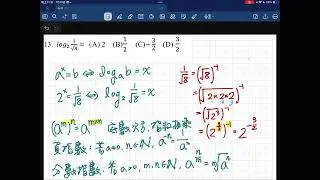 13. log₂ 1/√8 = (A) 2 (B) 1/2 (C) -3/2 (D) 3/2
aˣ = b ⇔ logₐb = x
2ˣ = 1/√8 ⇔ log₂ 1/√8 = x
(aᵐ)ⁿ = aᵐˣⁿ
負指數: 若 a≠0, n∈N, a⁻ⁿ = 1/aⁿ
分數指數: 若 a>0, m,n∈N, a^(n/m) = ᵐ√aⁿ
1/√8 = (√8)⁻¹
= (√2×2×2)⁻¹
= (√2³)⁻¹
= (2^(3/2))⁻¹ = 2^(-3/2)